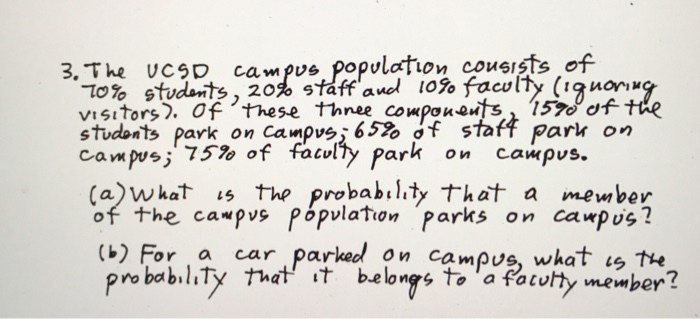 3. The UCSD campus population consists of
70% students, 20% staff and 10% faculty (ignoring
visitors). Of these three components, 15% of the
students park on campus; 65% of staff park on
campus; 75% of faculty park on campus.
(a) What is the probability that a member
of the campus population parks on campus?
(b) For a car parked on campus, what is the
probability that it belongs to a faculty member?